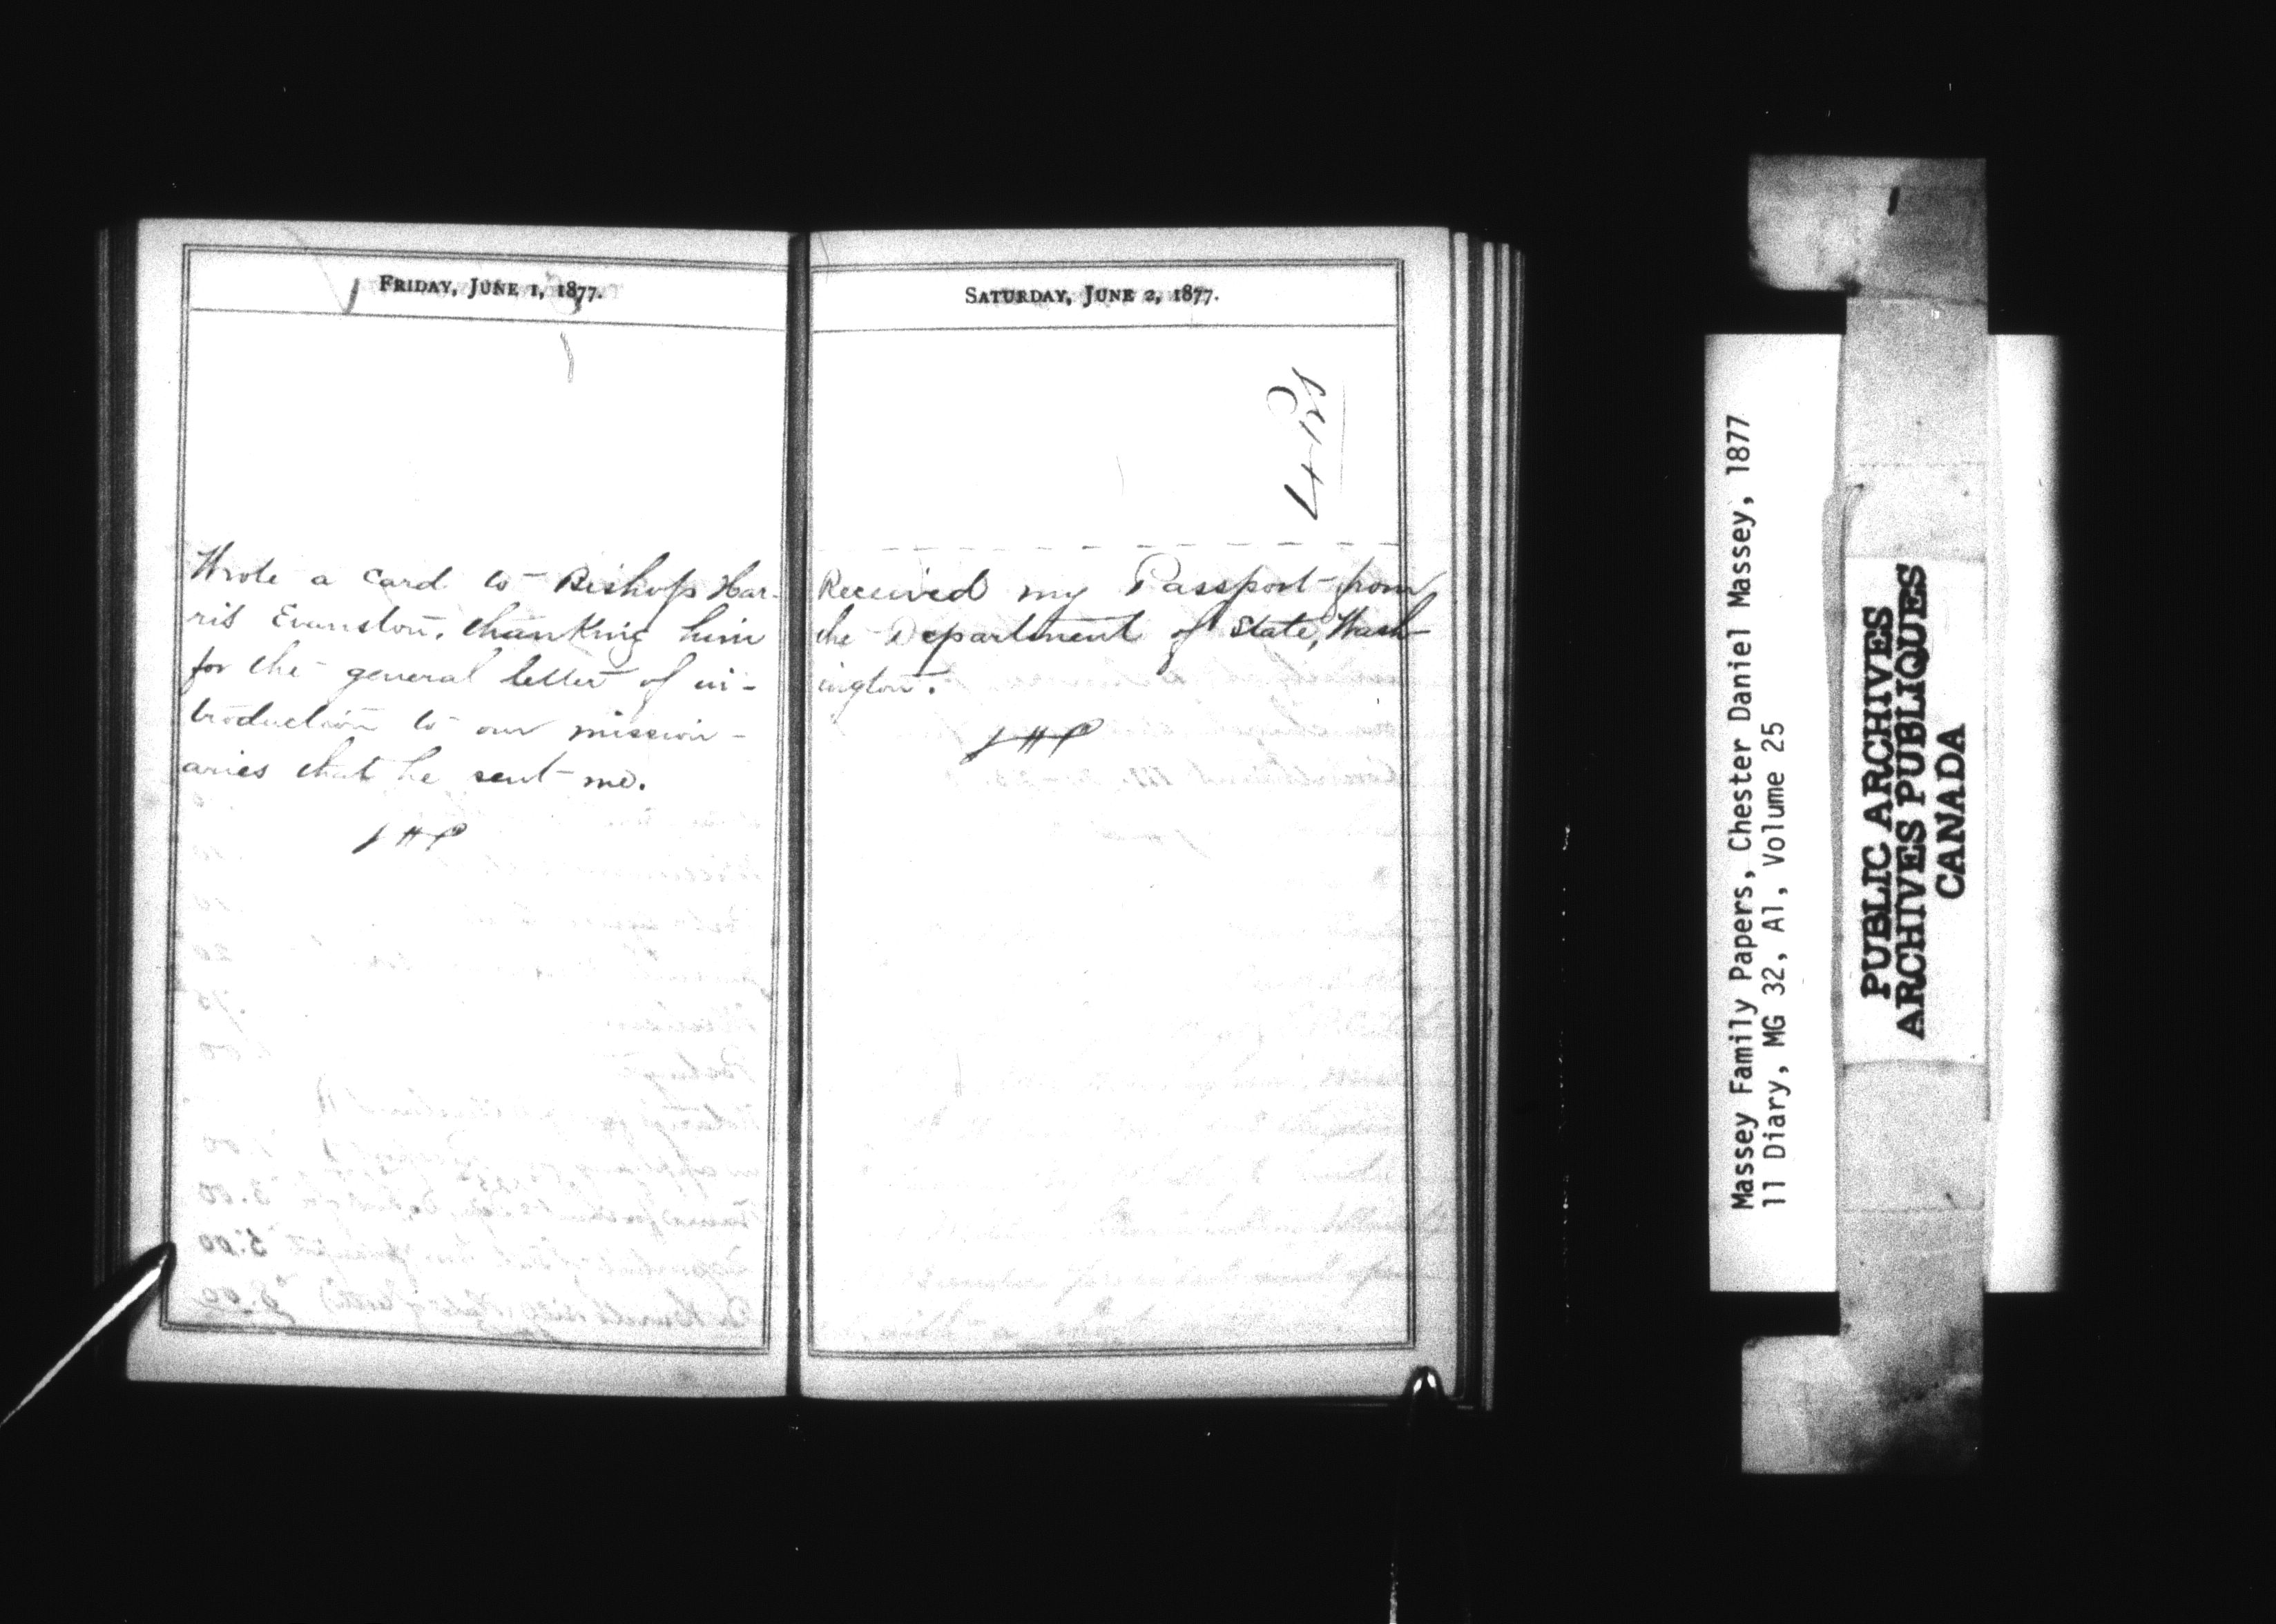 FRIDAY, JUNE 1, 1877.
Wrote a card to Bishop Har-
ris Evanston, thanking him
for the general letter of in-
troduction to our mission-
aries that he sent me.
SATURDAY, JUNE 2, 1877.
Received my Passport from
the Department of State, Wash-
ington.
Massey Family Papers, Chester Daniel Massey, 1877
11 Diary, MG 32, A1, Volume 25
PUBLIC ARCHIVES
ARCHIVES PUBLIQUES
CANADA